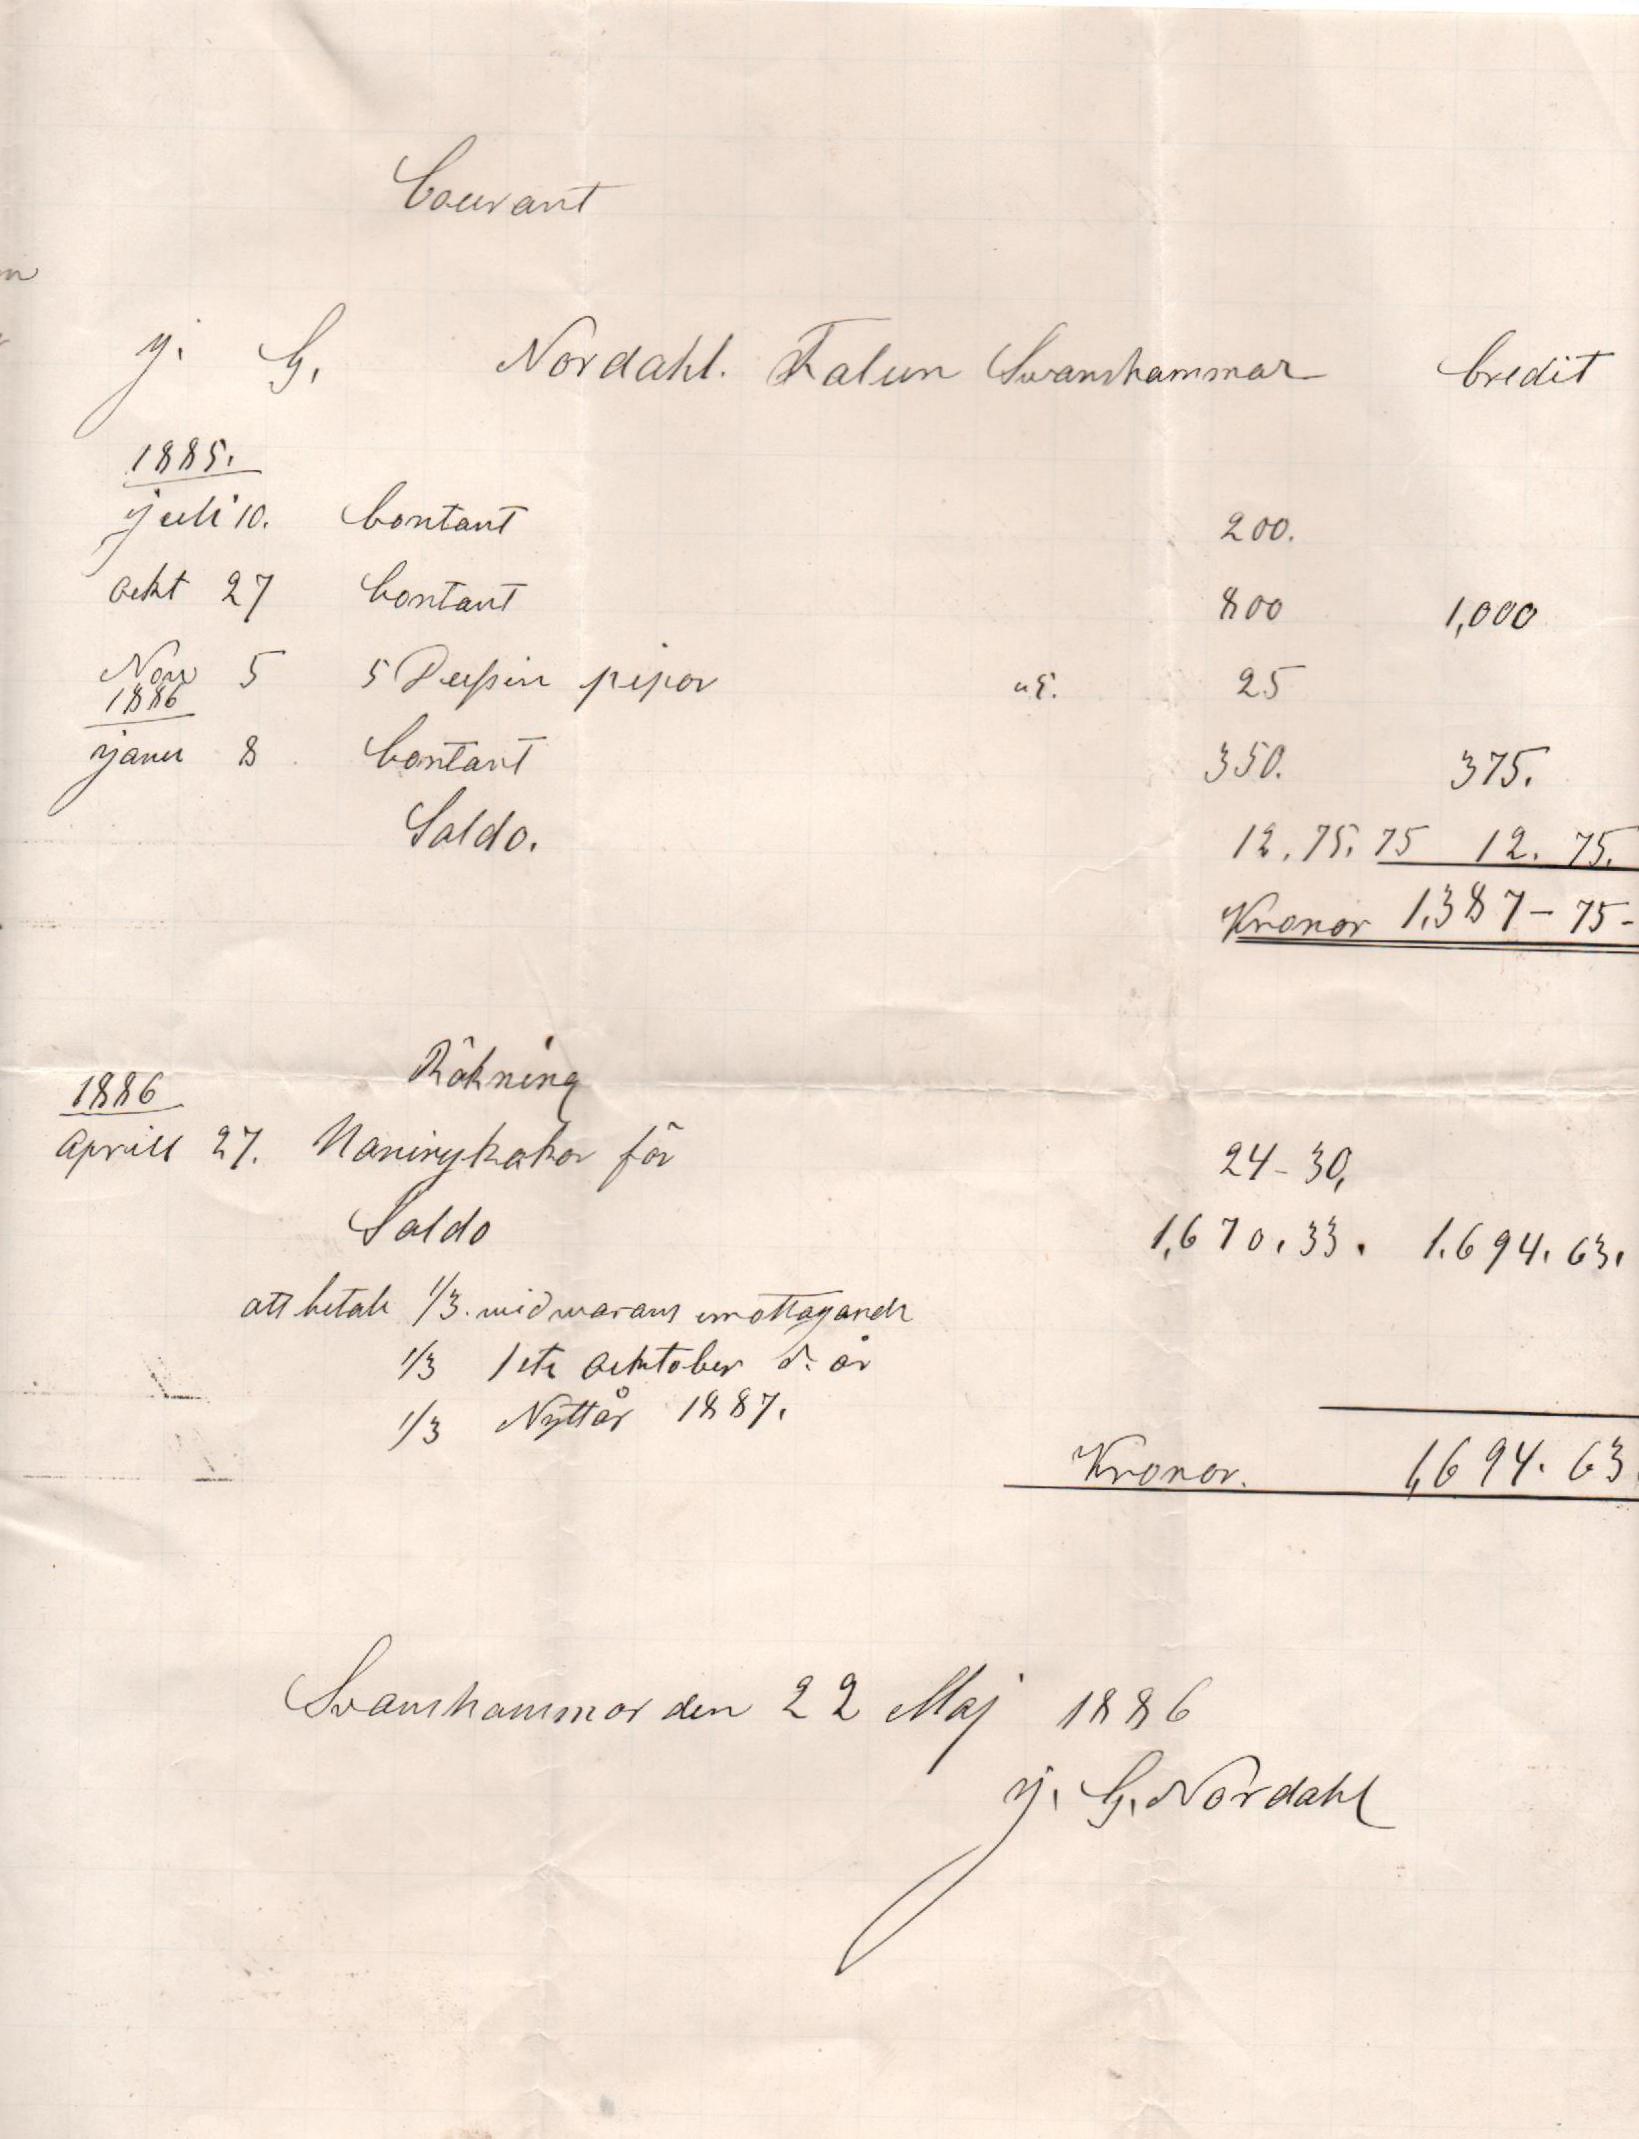 Courant
j. G. Nordahl. Falun Svanshammar Credit
1885.
juli 10. Contant 200.
Ockt 27 Contant 800 1,000
Nov 5 5 Dussin pipor 25
1886
janu 8 Contant 350. 375.
Saldo. 12.75.75 12.75.
Kronor 1,387-75-
Räkning
1886
Aprill 27. för 24-30,
Saldo 1,670.33. 1.694.63.
att betala 1/3 wid warans emottagande
1/3 1sta Ocktober d. år
1/3 Nyttår 1887.
Kronor. 1,694.63.
Svanshammar den 22 Maj 1886
j. G. Nordahl